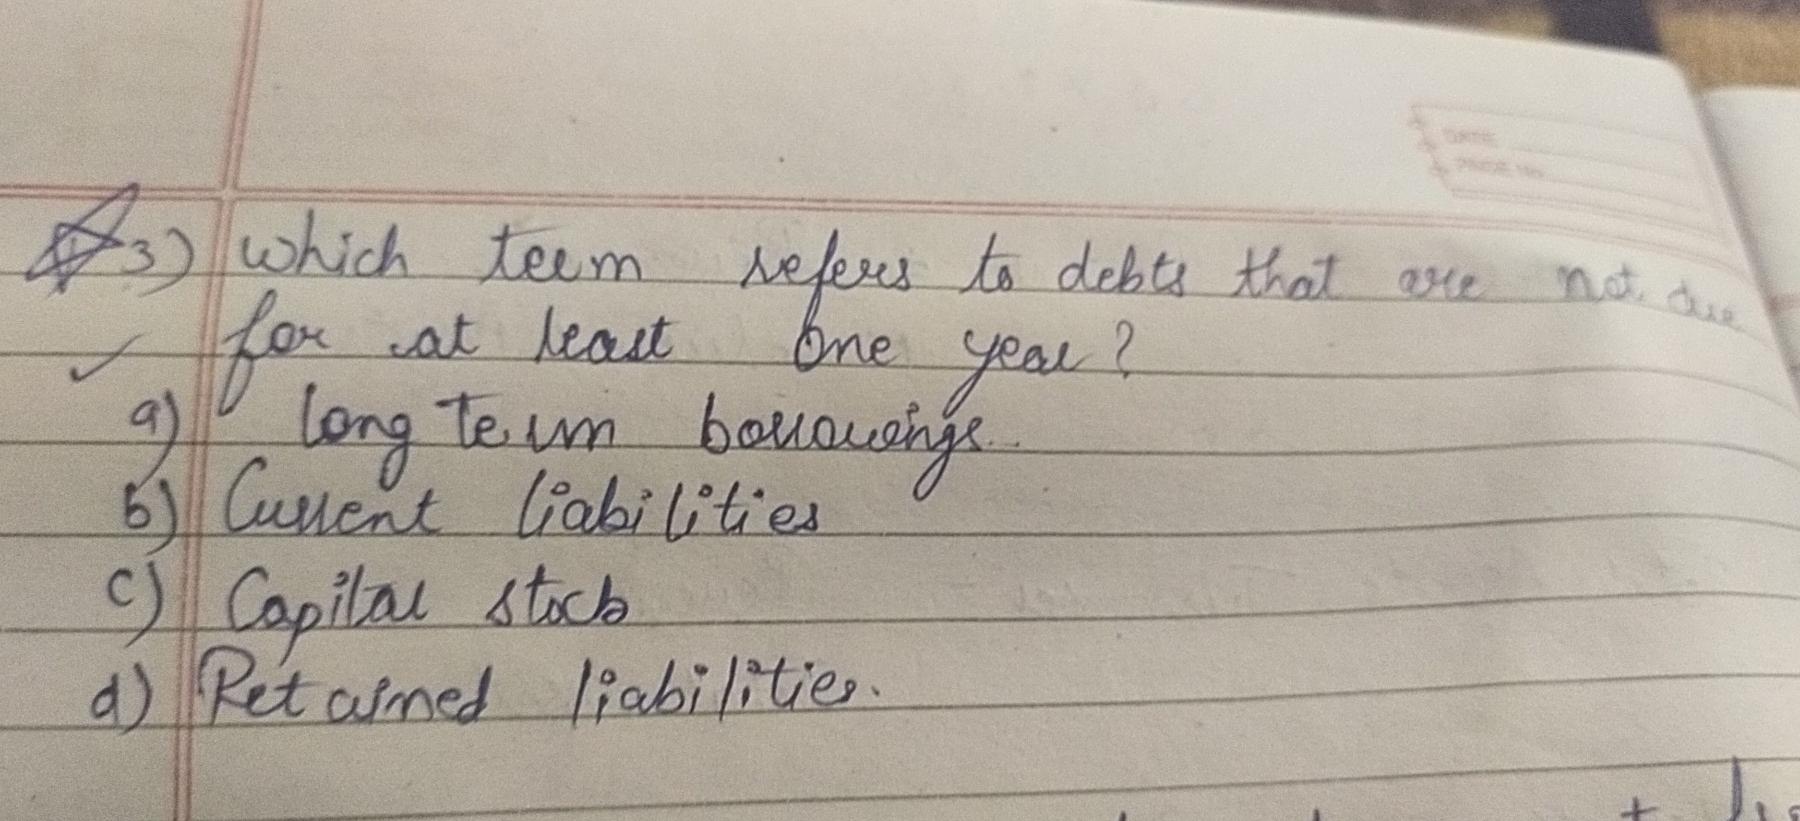 3) which term refers to debts that are not due
for at least one year?
a) long term borrowings.
b) Current liabilities
c) Capital stock
d) Retained liabilities.
DATE
PAGE NO.